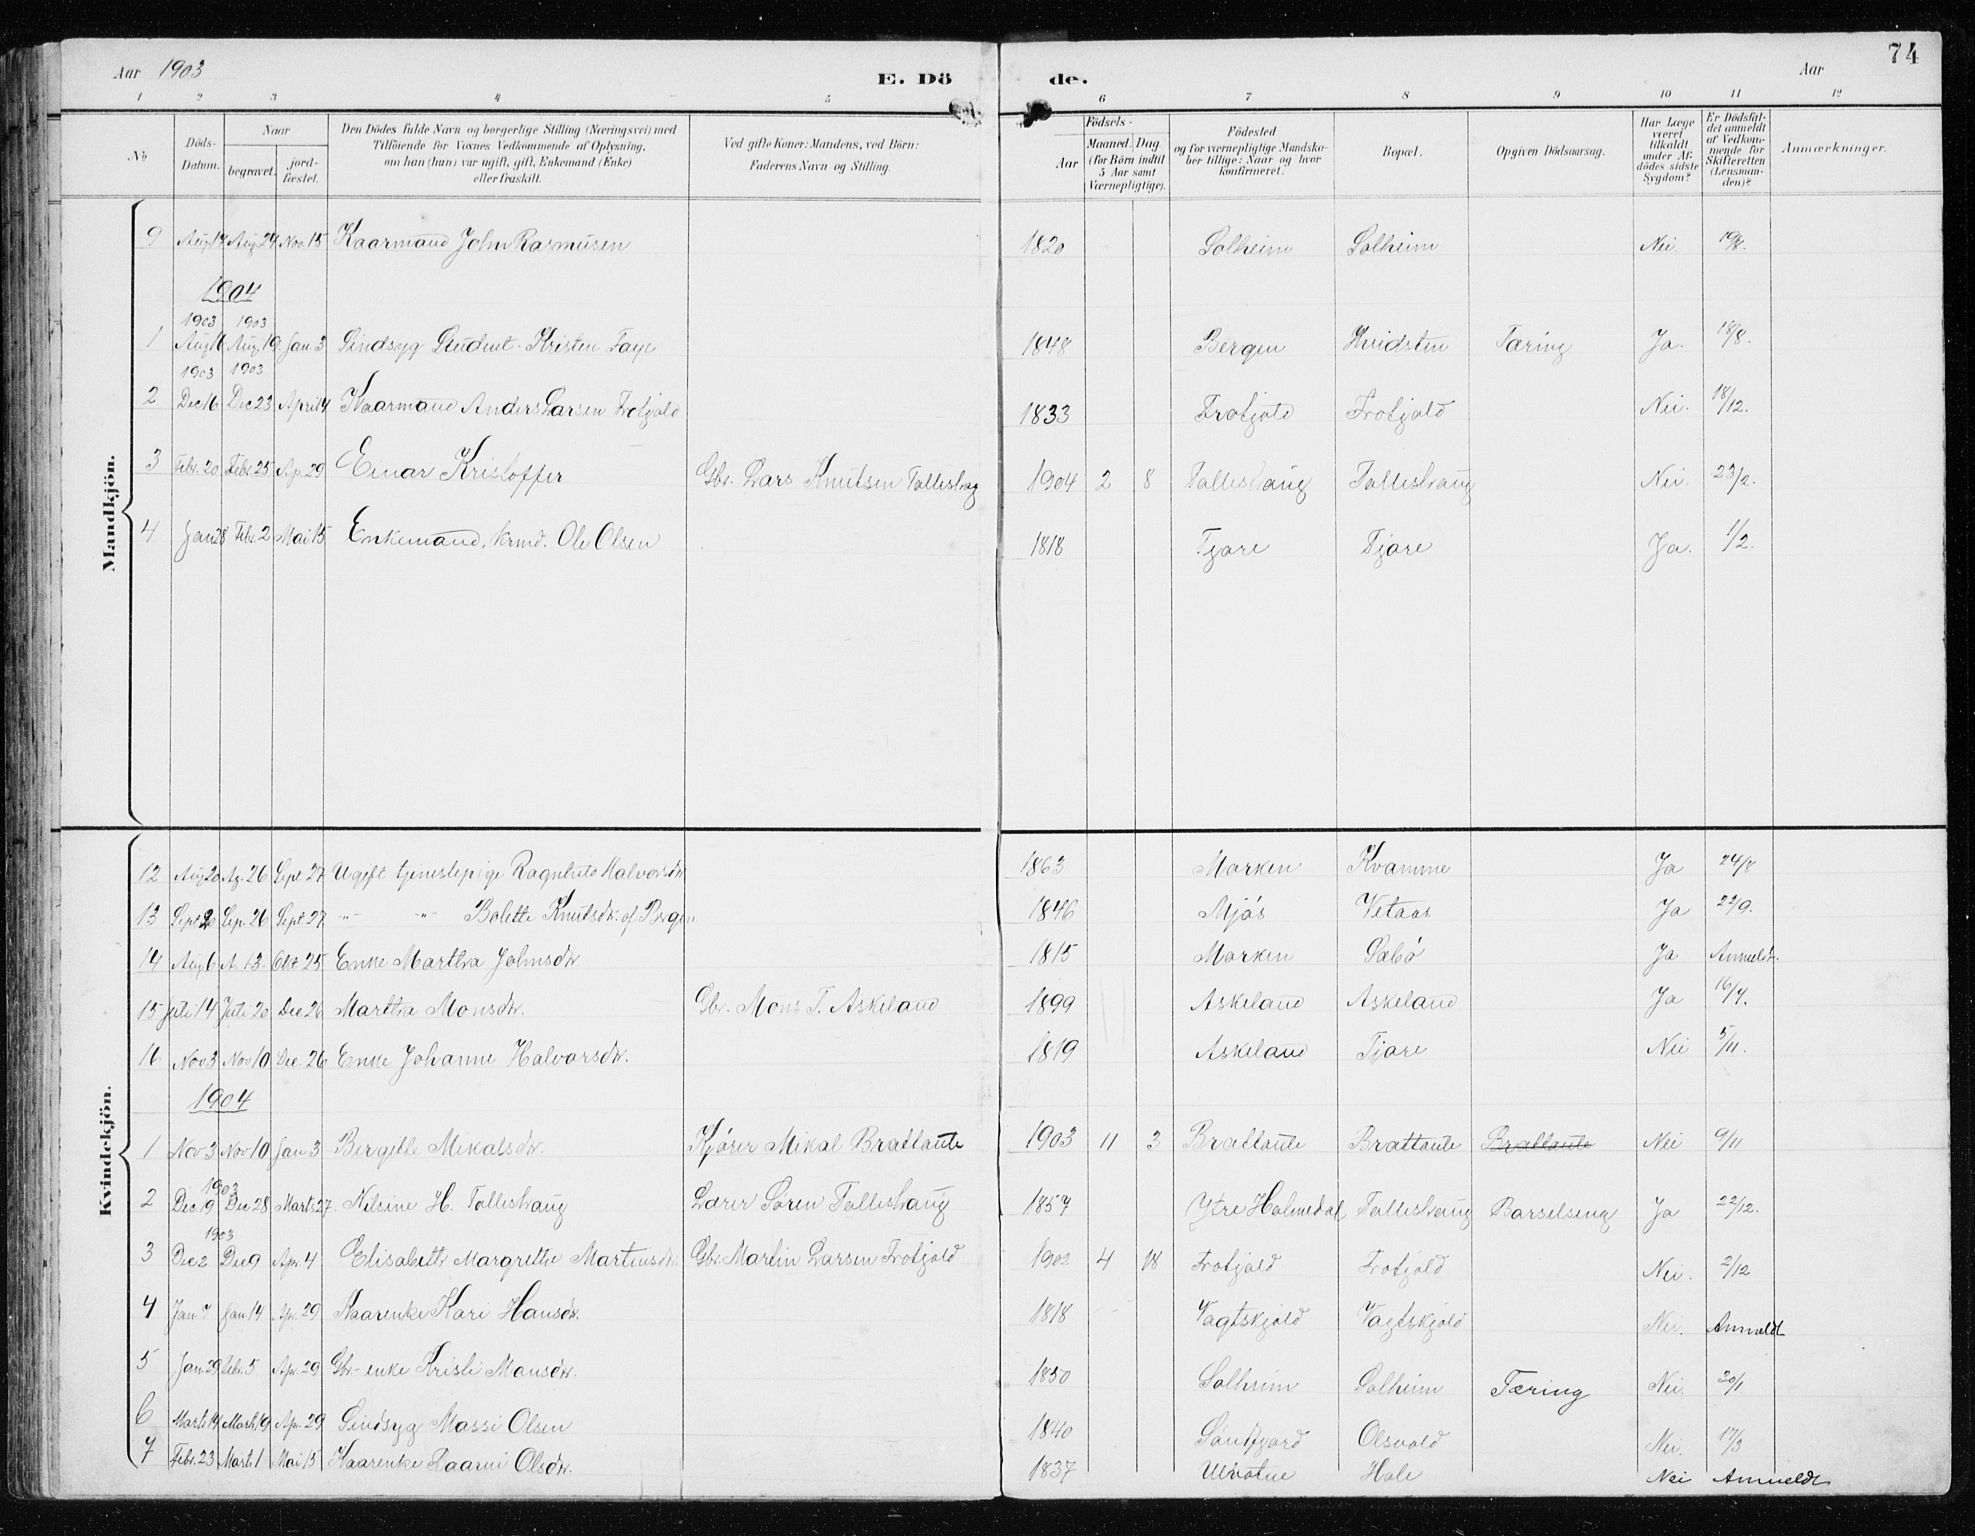 74
Aar 1903 E. Dö de. Aar
1 2 3 4 5 6 7 8 9 10 11 12
No
Döds-Datum.
Naar
begravet.
jord-fæstet.
Den Dödes fulde Navn og borgerlige Stilling (Næringsvei) med
Tilföiende for Voxnes Vedkommende af Oplysning,
om han (hun) var ugift, gift, Enkemand (Enke)
eller fraskilt.
Ved gifte Koner: Mandens, ved Börn:
Faderens Navn og Stilling.
Födsels-
Aar
Maaned. Dag
(for Börn indtil
5 Aar samt
Værnepligtige).
Födested
og for værnepligtige Mandska-
ber tillige: Naar og hvor
konfirmeret.
Bopæl.
Opgiven Dödsaarsag.
Har Læge
været
tilkaldt
under Af-
dödes sidste
Sygdom?
Er Dödsfal-
det anmeldt
af Vedkom-
mende for
Skifteretten
(Lensman-
den)?
Anmærkninger.
Mandkjön.
9 Aug 17 Aug 24 Nov. 15 Kaarmand John Rasmusen 1820 Solheim Solheim Nei 19/8.
1904
1903 1903
1 Aug 16 Aug. 19 Jan 3 Sindsyg Student Kristen Faye 1848 Bergen Hvidsten Tæring Ja. 18/8.
1903 1903
2 Dec 16 Dec 23 April 4 Kaarmand Anders Larsen Frotjold 1833 Frotjold Frotjold Nei. 18/12.
3 Febr. 20 Febr. 25 Ap. 29 Einar Kristoffer Gbr. Lars Knutsen Tolleshaug 1904 2 8 Tolleshaug Tolleshaug Nei. 23/2.
4 Jan 28 Febr. 2 Mai 15 Enkemand, krmd. Ole Olsen 1818 Tjore Tjore Ja. 1/2.
Kvindekjön.
12 Aug 20 Ag. 26 Sept 27 Ugift tjenestepige Ragnhilde Halvorsdr 1863 Morken Kvamme Ja 24/8
13 Sept 20 Sep. 26 Sept 27. -"- -"- Bolette Knutsdr. af Bergen 1846 Mjös Vetaas Ja 22/9.
14 Aug 6 A. 13 Okt 25 Enke Martha Johnsdr 1815 Morken Sæbö Ja Anmeldt.
15 Juli 14 Juli 20 Dec 26 Martha Monsdr. Gbr. Mons T. Askeland 1899 Askeland Askeland Ja 16/7.
16 Nov 3 Nov 10 Dec. 26 Enke Johanne Halvorsdr. 1819 Askeland Tjore Nei 5/11.
1904
1 Nov 3 Nov 10 Jan 3 Bergitte Mikalsdr. Kjörer Mikal Brattaule 1903 11 3 Brattaule Brattaule Brattaule Nei 9/11
1903
2 Dec 19 Dec 28 Marts 27. Nilsine H. Tolleshaug Lærer Sören Tolleshaug 1857 Ytre Holmedal Tolleshaug Barselseng Ja 22/12.
1903
3 Dec 2 Dec 9 Apr. 4 Elisabeth Margrethe Martinsdr. Gbr. Martin Larsen Frotjold 1902 4 18 Frotjold Frotjold Nei. 2/12
4 Jan. 7 Jan 14 Apr. 29 Kaarenke Kari Hansdr. 1818 Vagtskjold Vagtskjold Nei. Anmeldt
5 Jan. 29 Febr. 5 Apr. 29 Gbr-enke Kristi Monsdr. 1850 Solheim Solheim Tæring Nei. 30/1
6 Marts 14 Marts 19 Apr. 29 Sindsyg Massi Olsen 1840 Sandfjord Olsvold Nei. 17/3
7 Febr. 23 Marts 1 Mai 15 Kaarenke Olsdr. 1837 Hole Nei Anmeldt